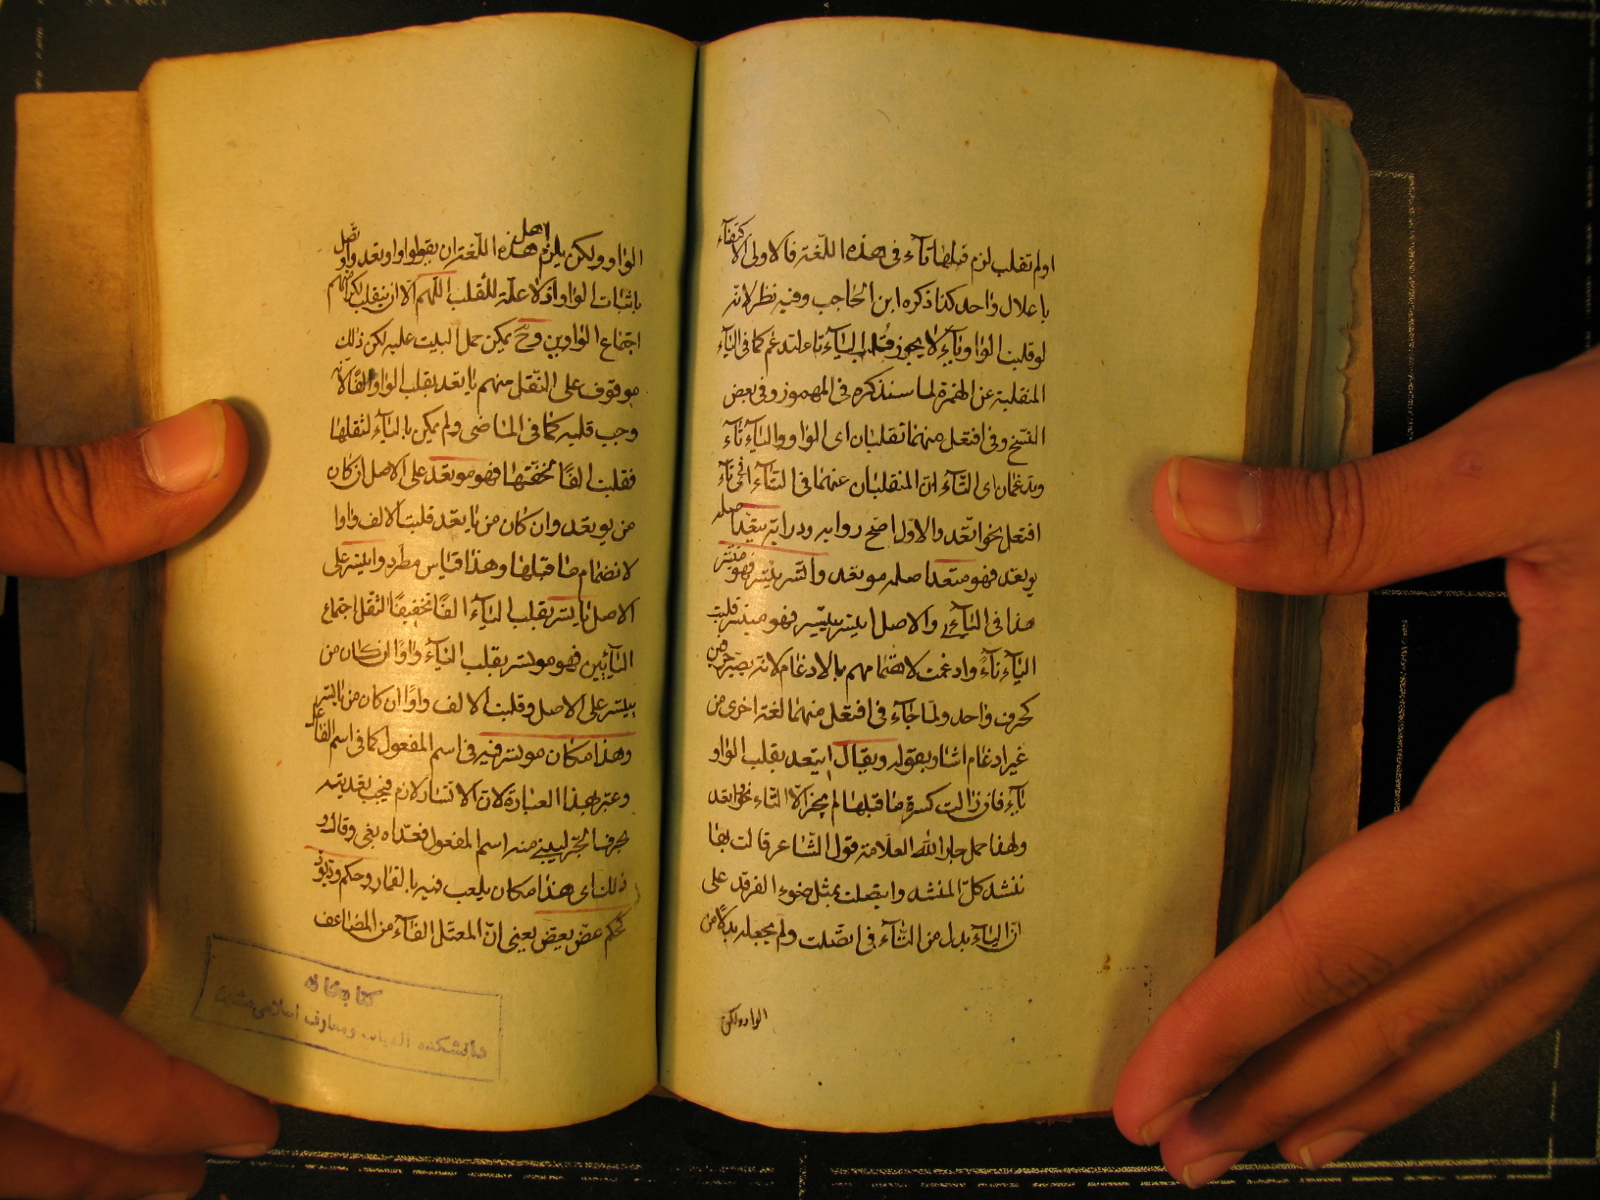 او لم تقلب لزم قبلها تآء فى هذه اللّغة فالاولى الاكتفآء
باعلال واحد كذا ذكره ابن الحاجب وفيه نظر لانه
لو قلبت الواو يآء لا يجوز قلب اليآء تآء لتدغم كما فى اليآء
المنقلبة عن الهمزة لما سنذكره فى المهموز وفى بعض
النسخ وفى افتعل منهما تقلبان اى الواو واليآء تآء
وتدغمان اى التّآء ان المنقلبتان عنهما فى التّآء اى تآء
افتعل نحو اتّعد والاوّل اصّح رواية ودراية يتّعد اصله
يوتعد فهو متّعد اصله موتعد واتّسر يتّسر فهو متّسر
هذا فى اليآء والاصل ايتسر ييتسر فهو ميتسر قلبت
اليآء تآءً وادغمت لاهتمامهم بالادغام لانه يصير حرفين
كحرف واحد ولما جآء فى افتعل منهما لغة اخرى من
غير ادغام اشار بقوله ويقال ايتعد بقلب الواو
يآء فان زالت كسرة ما قبلها لم يجز الا التّاء نحو اتّعد
ولهذا حمل جار اللّه العلّامة قول الشاعر قالت بها
تنشد كلّ المنشد وايتصلت بمثل ضوء الفرقد على
انّ اليآء بدل من التّآء فى اتّصلت ولم يجعله بدلًا من
الواو ولكن
الواو ولكن يلزم اهل هذه اللّغة ان يقولوا واوتعد وآوتصل
باثبات الواو اذ لا علّة للقلب اللّهم الا ان ينقلب لكراهتهم
اجتماع الواوين وحّ يمكن حمل البيت عليه لكن ذلك
موقوف على النّقل منهم يا تعد بقلب الواو الفًا لانّه
وجب قلبه كما فى الماضى ولم يمكن باليآء لثقلها
فقلبت الفًا لخفّتها فهو موتعد على الاصل ان كان
من يوتعد وان كان من ياتعد قلبت الالف واوا
لانضمام ما قبلها وهذا قياس مطرد وايتسر على
الاصل ياتسر بقلب اليآء الفًا تخفيفًا لثقل اجتماع
اليآئين فهو موتسر بقلب اليآء واوًا ان كان من
ييتسر على الاصل وقلبت الالف واوًا ان كان من ياتسر
وهذا مكان موتسر فيه فى اسم المفعول كما فى اسم الفاعل
وعبّر بهذا العبارة لانّ الاتسار لازم فيجب تعديته
بحرف الجّر ليبنى منه اسم المفعول فعدّاه بفى وقال و
ذلك اى هذا مكان يلعب فيه بالقمار وحكم ودّ يودّ
كحكم عضّ يعضّ يعنى انّ المعتل الفآء من المضاعف
كتابخانه
دانشكده الهيات ومعارف اسلامى مشهد